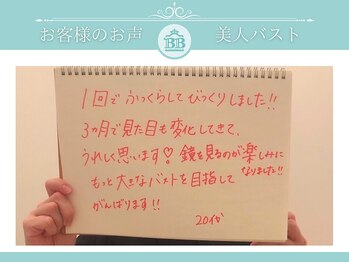 お客様のお声
BB
美人バスト
1回でふっくらしてびっくりしました!!
3ヵ月で見た目も変化してきて、
うれしく思います♡鏡を見るのが楽しみに
なりました!!
もっと大きなバストを目指して
がんばります!!
20代